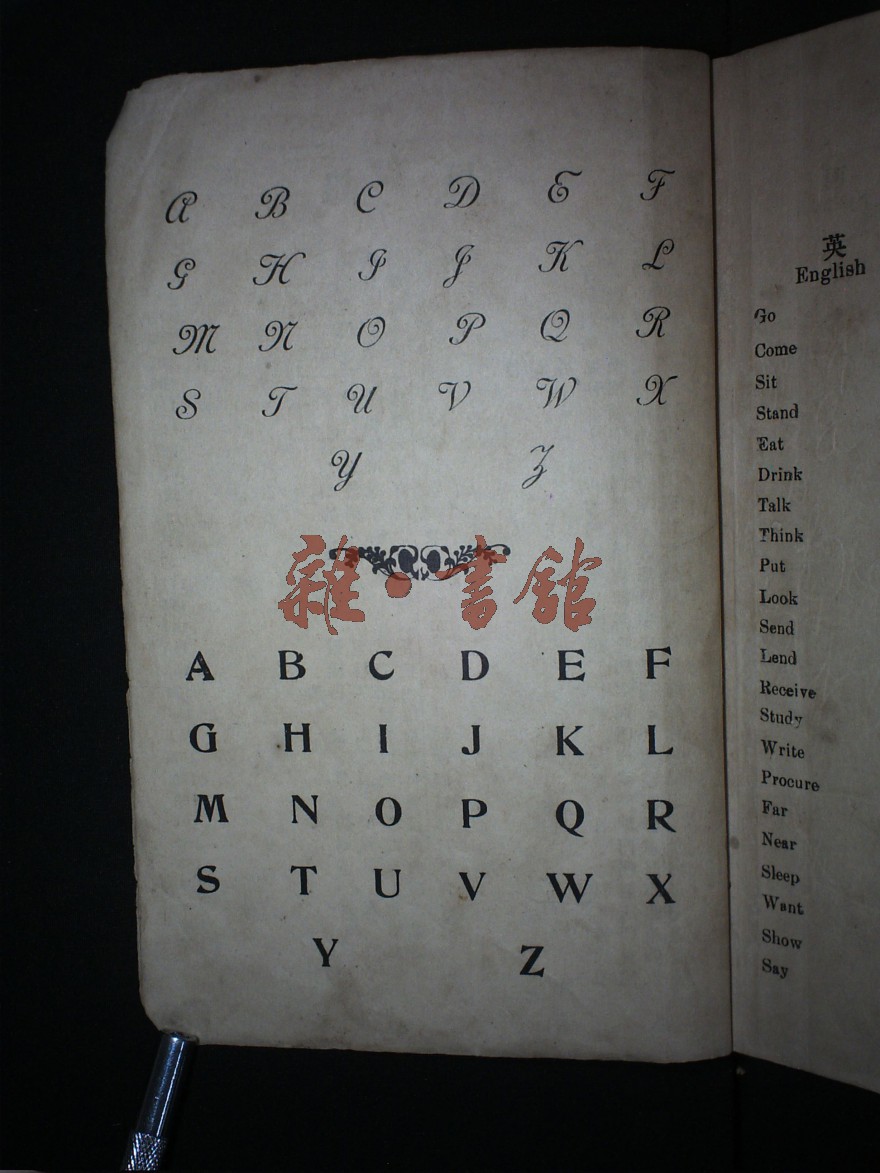 A B C D E F
G H I J K L
M N O P Q R
S T U V W X
Y Z
雜·書館
A B C D E F
G H I J K L
M N O P Q R
S T U V W X
Y Z
英
English
Go
Come
Sit
Stand
Eat
Drink
Talk
Think
Put
Look
Send
Lend
Receive
Study
Write
Procure
Far
Near
Sleep
Want
Show
Say